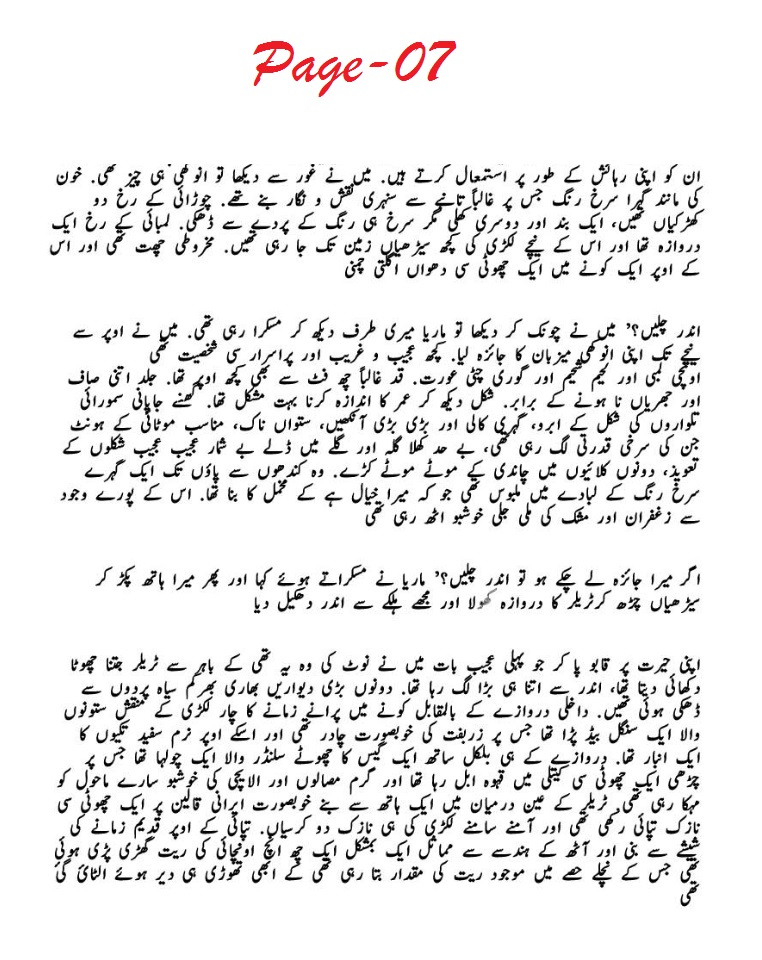 Page-07
ان کو اپنی رہائش کے طور پر استعمال کرتے ہیں. میں نے غور سے دیکھا تو انوکھی ہی چیز تھی. خون
کی مانند گہرا سرخ رنگ جس پر غالباً تانبے سے سنہری نقش و نگار بنے تھے. چوڑائی کے رخ دو
کھڑکیاں تھیں، ایک بند اور دوسری کھلی مگر سرخ ہی رنگ کے پردے سے ڈھکی. لمبائی کے رخ ایک
دروازہ تھا اور اس کے نیچے لکڑی کی کچھ سیڑھیاں زمین تک جا رہی تھیں. مخروطی چھت تھی اور اس
کے اوپر ایک کونے میں ایک چھوٹی سی دھواں اگلتی چمنی
اندر چلیں؟' میں نے چونک کر دیکھا تو ماریا میری طرف دیکھ کر مسکرا رہی تھی. میں نے اوپر سے
نیچے تک اپنی انوکھی میزبان کا جائزہ لیا. کچھ عجیب و غریب اور پراسرار سی شخصیت تھی
اونچی لمبی اور لحیم شحیم اور گوری چٹی عورت. قد غالباً چھ فٹ سے بھی کچھ اوپر تھا. جلد اتنی صاف
اور جھریاں نا ہونے کے برابر. شکل دیکھ کر عمر کا اندازہ کرنا بہت مشکل تھا. گھنے جاپانی سمورائی
تلواروں کی شکل کے ابرو، گہری کالی اور بڑی بڑی آنکھیں، ستواں ناک، مناسب موٹائی کے ہونٹ
جن کی سرخی قدرتی لگ رہی تھی، بے حد کھلا گلہ اور گلے میں ڈلے بے شمار عجیب عجیب شکلوں کے
تعویذ، دونوں کلائیوں میں چاندی کے موٹے موٹے کڑے. وہ کندھوں سے پاؤں تک ایک گہرے
سرخ رنگ کے لبادے میں ملبوس تھی جو کہ میرا خیال ہے کے مخمل کا بنا تھا. اس کے پورے وجود
سے زعفران اور مشک کی ملی جلی خوشبو اٹھ رہی تھی
اگر میرا جائزہ لے چکے ہو تو اندر چلیں؟' ماریا نے مسکراتے ہوئے کہا اور پھر میرا ہاتھ پکڑ کر
سیڑھیاں چڑھ کرٹریلر کا دروازہ کھولا اور مجھے ہلکے سے اندر دھکیل دیا
اپنی حیرت پر قابو پا کر جو پہلی عجیب بات میں نے نوٹ کی وہ یہ تھی کے باہر سے ٹریلر جتنا چھوٹا
دکھائی دیتا تھا، اندر سے اتنا ہی بڑا لگ رہا تھا. دونوں بڑی دیواریں بھاری بھرکم سیاہ پردوں سے
ڈھکی ہوئی تھیں. داخلی دروازے کے بالمقابل کونے میں پرانے زمانے کا چار لکڑی کے منقش ستونوں
والا ایک سنگل بیڈ پڑا تھا جس پر زربفت کی خوبصورت چادر تھی اور اسکے اوپر نرم سفید تکیوں کا
ایک انبار تھا. دروازے کے ہی بلکل ساتھ ایک گیس کا چھوٹے سلنڈر والا ایک چولہا تھا جس پر
چڑھی ایک چھوٹی سی کیتلی میں قہوہ ابل رہا تھا اور گرم مصالوں اور الایچی کی خوشبو سارے ماحول کو
مہکا رہی تھی. ٹریلر کے عین درمیان میں ایک ہاتھ سے بنے خوبصورت ایرانی قالین پر ایک چھوٹی سی
نازک تپائی رکھی تھی اور آمنے سامنے لکڑی کی ہی نازک دو کرسیاں. تپائی کے اوپر قدیم زمانے کی
شیشے سے بنی اور آٹھ کے ہندسے سے مماثل ایک بمشکل ایک چھ انچ اونچائی کی ریت گھڑی پڑی ہوئی
تھی جس کے نچلے حصے میں موجود ریت کی مقدار بتا رہی تھی کے ابھی تھوڑی ہی دیر ہوئے الٹائ گئ
تھی